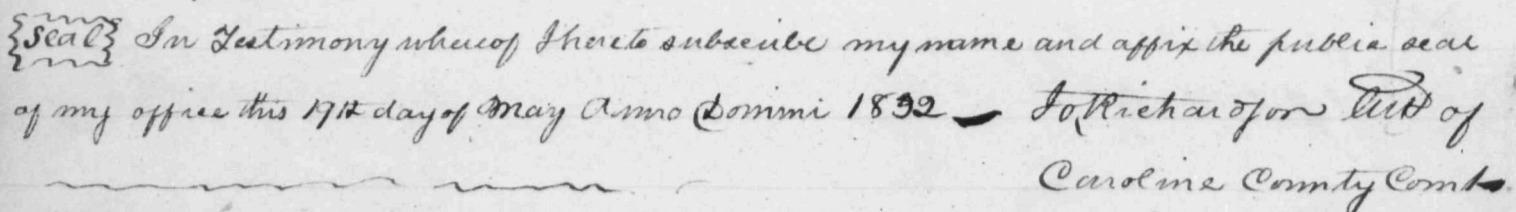 Seal In Testimony whereof I hereto subscribe my name and affix the public seal
of my office this 19th day of May Anno Domini 1832 Jo Richardson Clk of
Caroline County Court